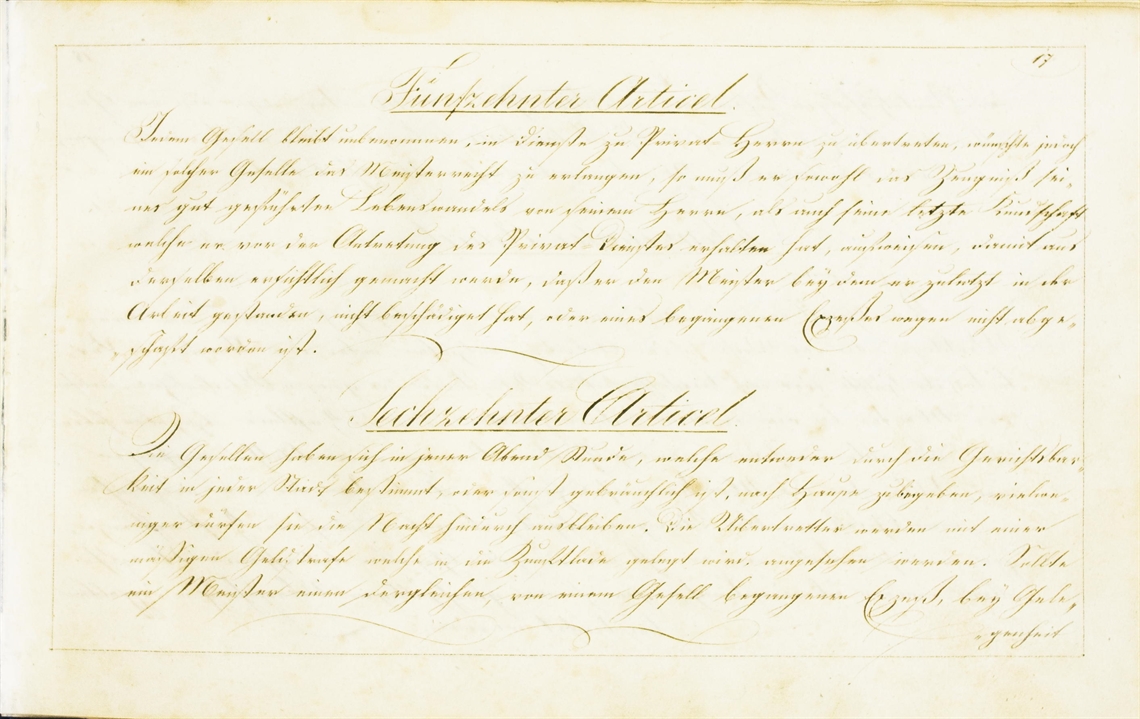 17
Fünfzehnter Articel.
Jedem Gesell bleibt unbenommen, in Dienste zu Privat Herrn zu übertreten, wünschte jedoch
ein solcher Geselle das Meisterrecht zu erlangen, so muß er sowohl das Zeugniß sei-
nes gut geführten Lebenswandels von seinem Herrn, als auch seine letzte Kundschaft
welche er vor der Antretung des Privat Dienstes erhalten hat, aufweisen, damit aus
derselben ersichtlich gemacht werde, daß er den Meister bey dem er zuletzt in der
Arbeit gestanden, nicht beschädiget hat, oder eines begangenen Exzeßes wegen nicht abge-
schaft worden ist.
Sechzehnter Articel.
Die Gesellen haben sich in jener Abend Stunde, welche entweder durch die Gerichtsbar-
keit in jeder Stadt bestimmt, oder sonst gebräuchlich ist, nach Hause zubegeben, vielwe-
niger dürfen sie die Nacht hindurch ausbleiben. Die Übertretter werden mit einer
mässigen Geldstrafe welche in die Zunftlade gelegt wird, angesehen werden. Sollte
ein Meister einen dergleichen, von einem Gesell begangenen Exzeß, bey Gele-
genheit